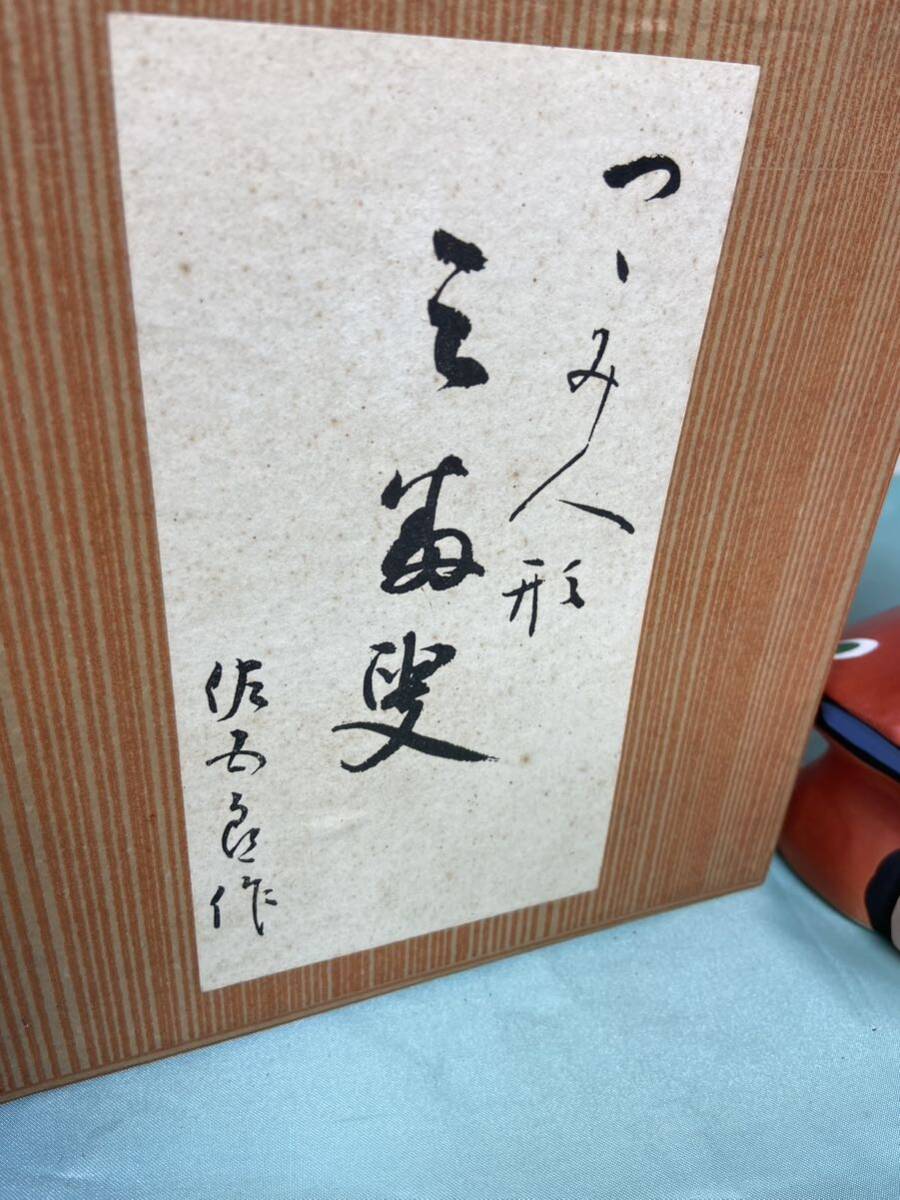 つゝみ人形
三番叟
佐五郎作